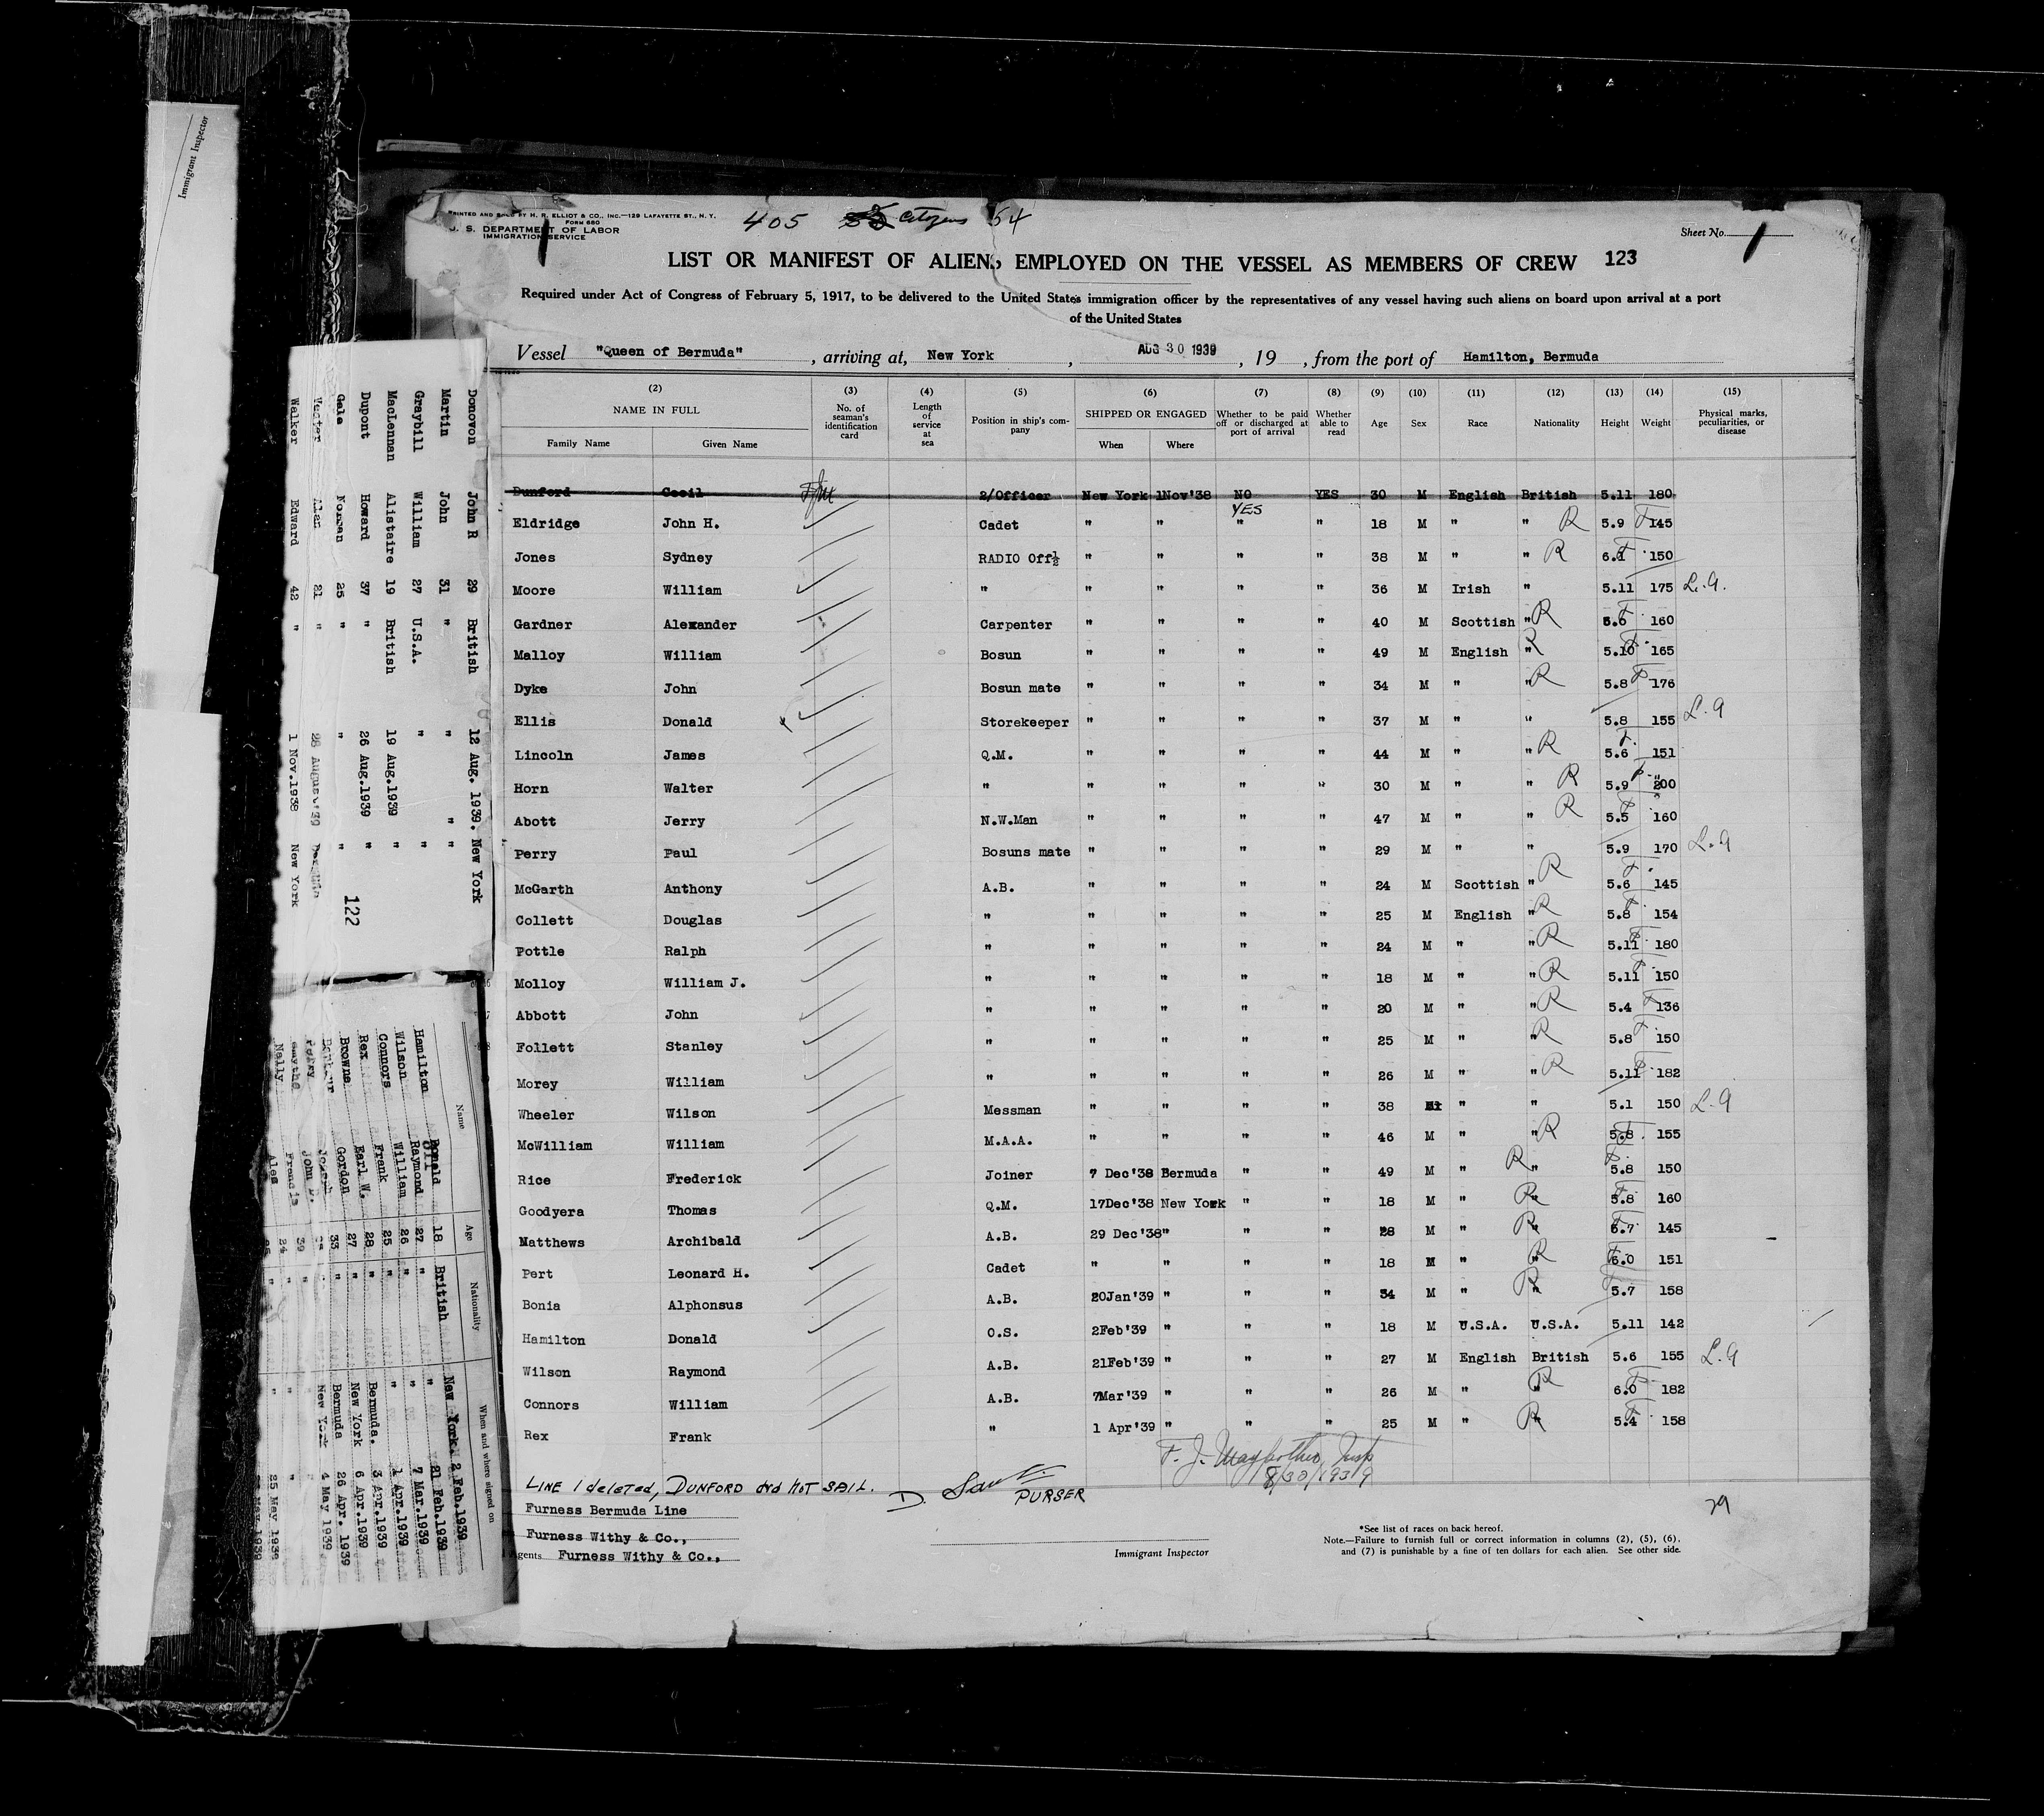 Immigrant Inspector
PRINTED AND SOLD BY H. R. ELLIOT & CO., INC.—129 LAFAYETTE ST., N. Y.
FORM 680
U. S. DEPARTMENT OF LABOR
IMMIGRATION SERVICE
405 Citizens 54
Sheet No. 1
LIST OR MANIFEST OF ALIENS EMPLOYED ON THE VESSEL AS MEMBERS OF CREW 123
Required under Act of Congress of February 5, 1917, to be delivered to the United States immigration officer by the representatives of any vessel having such aliens on board upon arrival at a port
of the United States
Vessel "Queen of Bermuda", arriving at, New York, AUG 30 1939, 19, from the port of Hamilton, Bermuda
(2) (3) (4) (5) (6) (7) (8) (9) (10) (11) (12) (13) (14) (15)
NAME IN FULL No. of seaman's identification card Length of service at sea Position in ship's company SHIPPED OR ENGAGED Whether to be paid off or discharged at port of arrival Whether able to read Age Sex Race Nationality Height Weight Physical marks, peculiarities, or disease
Family Name Given Name When Where
Dunford Cecil 2/Officer New York 1Nov'38 NO YES 30 M English British 5.11 180
YES
Eldridge John H. Cadet " " " " 18 M " " R 5.9 145
Jones Sydney RADIO Off½ " " " " 38 M " " R 150
Moore William " " " " " 36 M Irish " 5.11 175 L.A.
Gardner Alexander Carpenter " " " " 40 M Scottish " R 160
Malloy William Bosun " " " " 49 M English " R 5.10 165
Dyke John Bosun mate " " " " 34 M " " R 5.8 176
Ellis Donald Storekeeper " " " " 37 M " " 5.8 155 L.A
Lincoln James Q.M. " " " " 44 M " " R 5.6 151
Horn Walter " " " " " 30 M " " R 5.9 200
Abott Jerry N.W.Man " " " " 47 M " " R 5.5 160
Perry Paul Bosuns mate " " " " 29 M " " 5.9 170 L.A
McGarth Anthony A.B. " " " " 24 M Scottish " R 5.6 145
Collett Douglas " " " " " 25 M English " R 5.8 154
Pottle Ralph " " " " " 24 M " " R 5.11 180
Molloy William J. " " " " " 18 M " " R 5.11 150
Abbott John " " " " " 20 M " " R 5.4 136
Follett Stanley " " " " " 25 M " " R 5.8 150
Morey William " " " " " 26 M " " R 5.11 182
Wheeler Wilson Messman " " " " 38 M " " 5.1 150 L.A
McWilliam William M.A.A. " " " " 46 M " " R 5.8 155
Rice Frederick Joiner 7 Dec'38 Bermuda " " 49 M " R " 5.8 150
Goodyera Thomas Q.M. 17Dec'38 New York " " 18 M " R " 5.8 160
Matthews Archibald A.B. 29 Dec'38 " " " 28 M " R " 145
Pert Leonard H. Cadet " " " " 18 M " R " 6.0 151
Bonia Alphonsus A.B. 20Jan'39 " " " 34 M " R " 5.7 158
Hamilton Donald O.S. 2Feb'39 " " " 18 M U.S.A. U.S.A. 5.11 142
Wilson Raymond A.B. 21Feb'39 " " " 27 M English British 5.6 155 L.A
Connors William A.B. 7Mar'39 " " " 26 M " R " 6.0 182
Rex Frank " 1 Apr'39 " " " 25 M " R " 5.4 158
LINE 1 deleted, DUNFORD did NOT SAIL.
PURSER
8/30/1939
Furness Bermuda Line
Furness Withy & Co.,
Agents Furness Withy & Co.,
Immigrant Inspector
29
*See list of races on back hereof.
Note.—Failure to furnish full or correct information in columns (2), (5), (6),
and (7) is punishable by a fine of ten dollars for each alien. See other side.
Donovon John R 29 British 12 Aug. 1939. New York
Martin John 31 " " " "
Graybill William 27 U.S.A. " "
MacLennan Alistaire 19 British 19 Aug.1939 "
Dupont Howard 37 " 26 Aug.1939 "
Gale Norman 25 " " "
Alan 21 " 28 August'39
Walker Edward 42 " 1 Nov.1938 New York
122
Name Age Nationality When and where signed on
Hamilton Donald 18 British New York 2 Feb.1939
Wilson Raymond 27 " " 21 Feb.1939
Connors William 26 " " 7 Mar.1939
Rex Frank 25 " " 1 Apr.1939
Browne Earl W. 28 " Bermuda. 3 Apr.1939
Gordon 27 " New York 6 Apr.1939
Joseph 33 " Bermuda 26 Apr. 1939
John New York 4 May 1939
Francis 39 " " "
Nally Alec 24 " " 25 May 1939